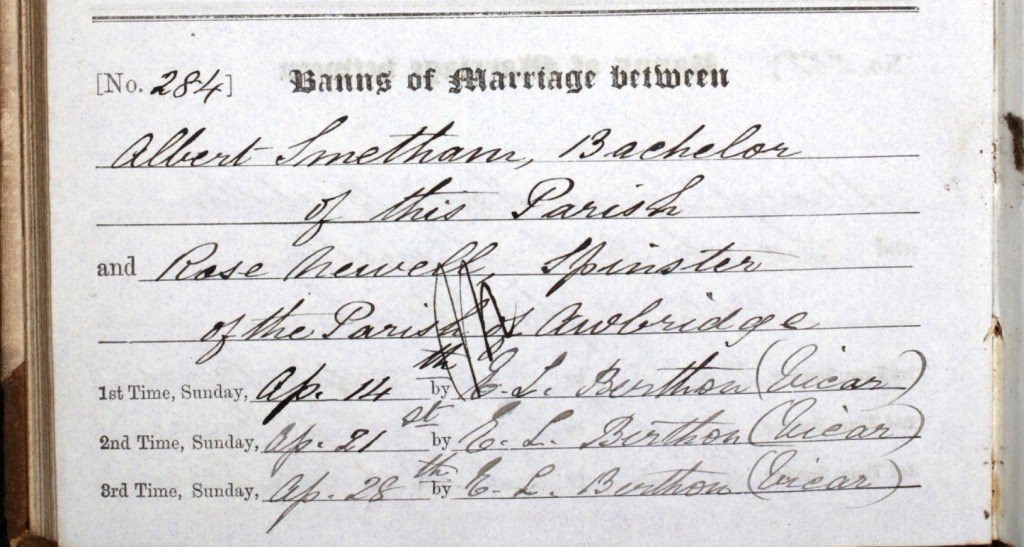 [No. 284] Banns of Marriage between
Albert Smetham, Bachelor
of this Parish
and Rose Newell, Spinster
of the Parish of Awbridge
1st Time, Sunday, Ap. 14th by E. L. Berthon (Vicar)
2nd Time, Sunday, Ap. 21st by E. L. Berthon (Vicar)
3rd Time, Sunday, Ap. 28th by E. L. Berthon (Vicar)